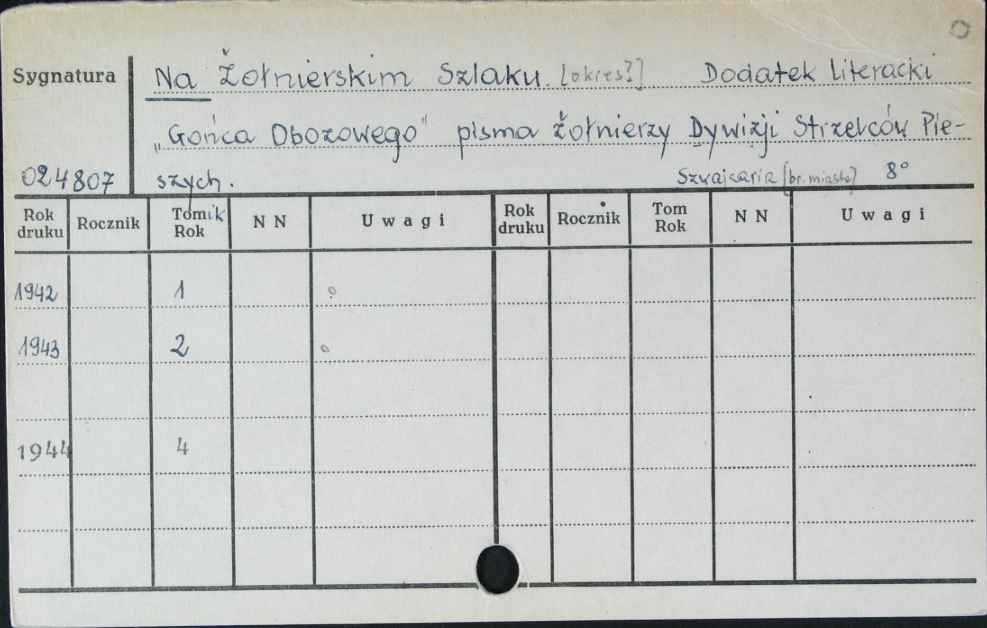 Sygnatura Na Żołnierskim Szlaku. [okres?] Dodatek literacki
„Gońca Obozowego" pisma żołnierzy Dywizji Strzelców Pie-
024807 szych. Szwajcaria [br. miasta] 8°
Rok druku Rocznik Tomik Rok N N Uwagi Rok druku Rocznik Tom Rok N N Uwagi
1942 1
1943 2
1944 4